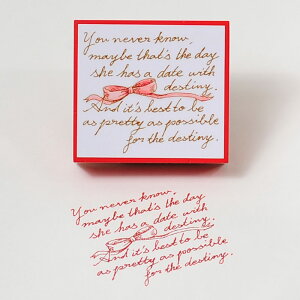 You never know,
maybe that's the day
she has a date with
destiny.
And it's best to be
as pretty as possible
for the destiny.
You never know,
maybe that's the day
she has a date with
destiny.
And it's best to be
as pretty as possible
for the destiny.